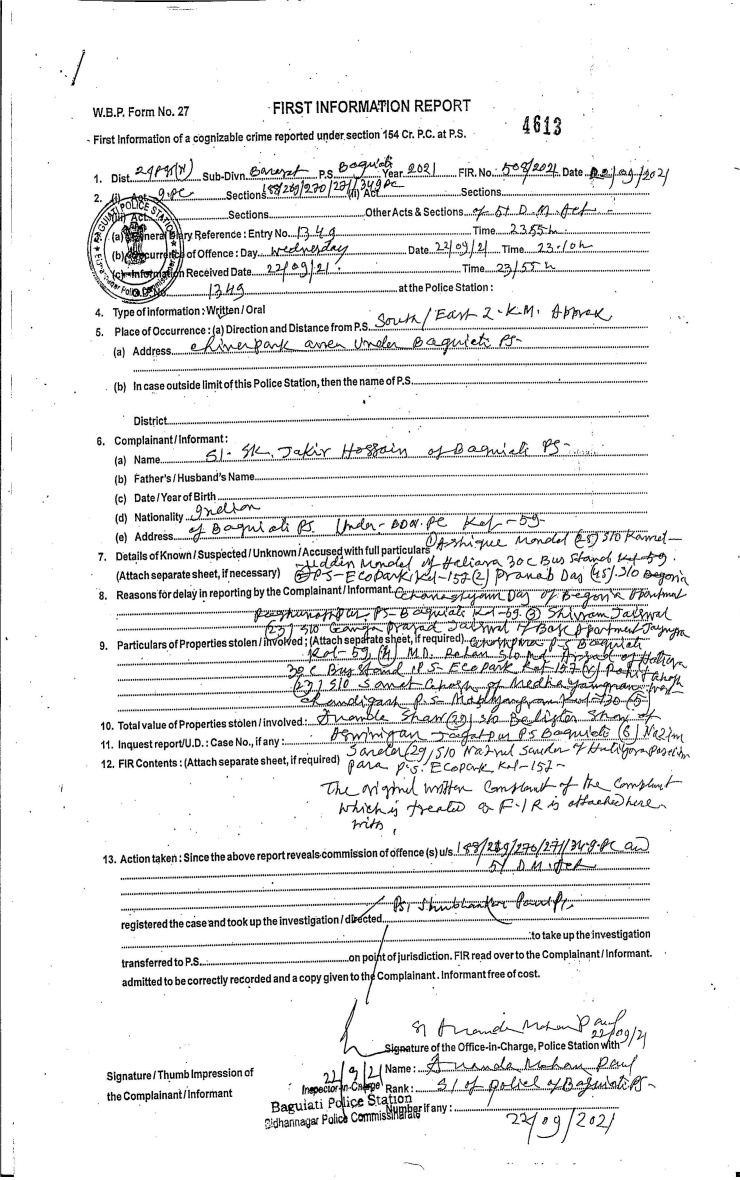 W.B.P. Form No. 27
FIRST INFORMATION REPORT
4613
First Information of a cognizable crime reported under section 154 Cr. P.C. at P.S.
1. Dist. 24PGS(N) Sub-Divn. Barasat P.S. Baguiati Year 2021 FIR. No. 508/2021 Date 22/09/2021
2. (i) Act I.PC Sections 188/269/270/271/34 I PC (ii) Act Sections
(iii) Act Sections Other Acts & Sections of 51 D.M. Act
(a) General Diary Reference : Entry No. 1349 Time 23.55h
(b) Occurrence of Offence : Day Wednesday Date 22/09/21 Time 23.10h
(c) Information Received Date 22/09/21. Time 23/55h
1349 at the Police Station :
4. Type of information : Written / Oral
5. Place of Occurrence : (a) Direction and Distance from P.S. South/East 2-K.M. Approx
(a) Address Chinerpark area under Baguiati PS-
(b) In case outside limit of this Police Station, then the name of P.S.
District
6. Complainant / Informant :
(a) Name SI- SK. Jakir Hossain of Baguiati PS-
(b) Father's / Husband's Name
(c) Date / Year of Birth
(d) Nationality Indian
(e) Address of Baguiati PS Under- BDN. PC Kol-59-
7. Details of Known / Suspected / Unknown / Accused with full particulars (1) Ashique Mondal (25) S/O Kamal-
uddin Mondal of Hatiara 30C Bus Stand
(Attach separate sheet, if necessary) PS-EcoPark, Kol-157 (2) Pranab Das (45) S/O
8. Reasons for delay in reporting by the Complainant / Informant Ghanashyam Das of Begonia Apartment
Raghunathpur PS-Baguiati Kol-59 (3) Shivam Jaiswal
(23) S/O Ganga Prasad Jaiswal of Apartment
9. Particulars of Properties stolen / involved ; (Attach separate sheet, if required) P.S Baguiati
Kol-59, (4) M.D. S/O Md of Hatiara
30C Bus Stand P.S EcoPark Kol-157 Rohit Ghosh
(23) S/O Ghosh of
P.S. (5)
10. Total value of Properties stolen / involved : Ananda Shaw (29) S/O Shaw of
11. Inquest report/U.D. : Case No., if any : Aswininagar Jagatpur PS Baguiati (6) Nazim
12. FIR Contents : (Attach separate sheet, if required) Sardar (29) S/O Nazrul Sardar of Hatiyara Paschim
para P.S. Ecopark, Kol-157-
The original written Complaint of the Complaint
which is treated as F.I.R is attached here
with,
13. Action taken : Since the above report reveals commission of offence (s) u/s 188/269/270/271/34 I.PC and
51 D.M. Act
registered the case and took up the investigation / directed PSI Shubhankar
to take up the investigation
transferred to P.S. on point of jurisdiction. FIR read over to the Complainant / Informant.
admitted to be correctly recorded and a copy given to the Complainant. Informant free of cost.
SI Ananda Mohan Paul
22/09/21
Signature of the Office-in-Charge, Police Station with
22/9/21
Name : Ananda Mohan Paul
Signature / Thumb Impression of
the Complainant / Informant
Inspector-in-Charge
Rank : SI of police of Baguiati PS-
Baguiati Police Station
Number if any :
Bidhannagar Police Commissionarate
22/09/2021